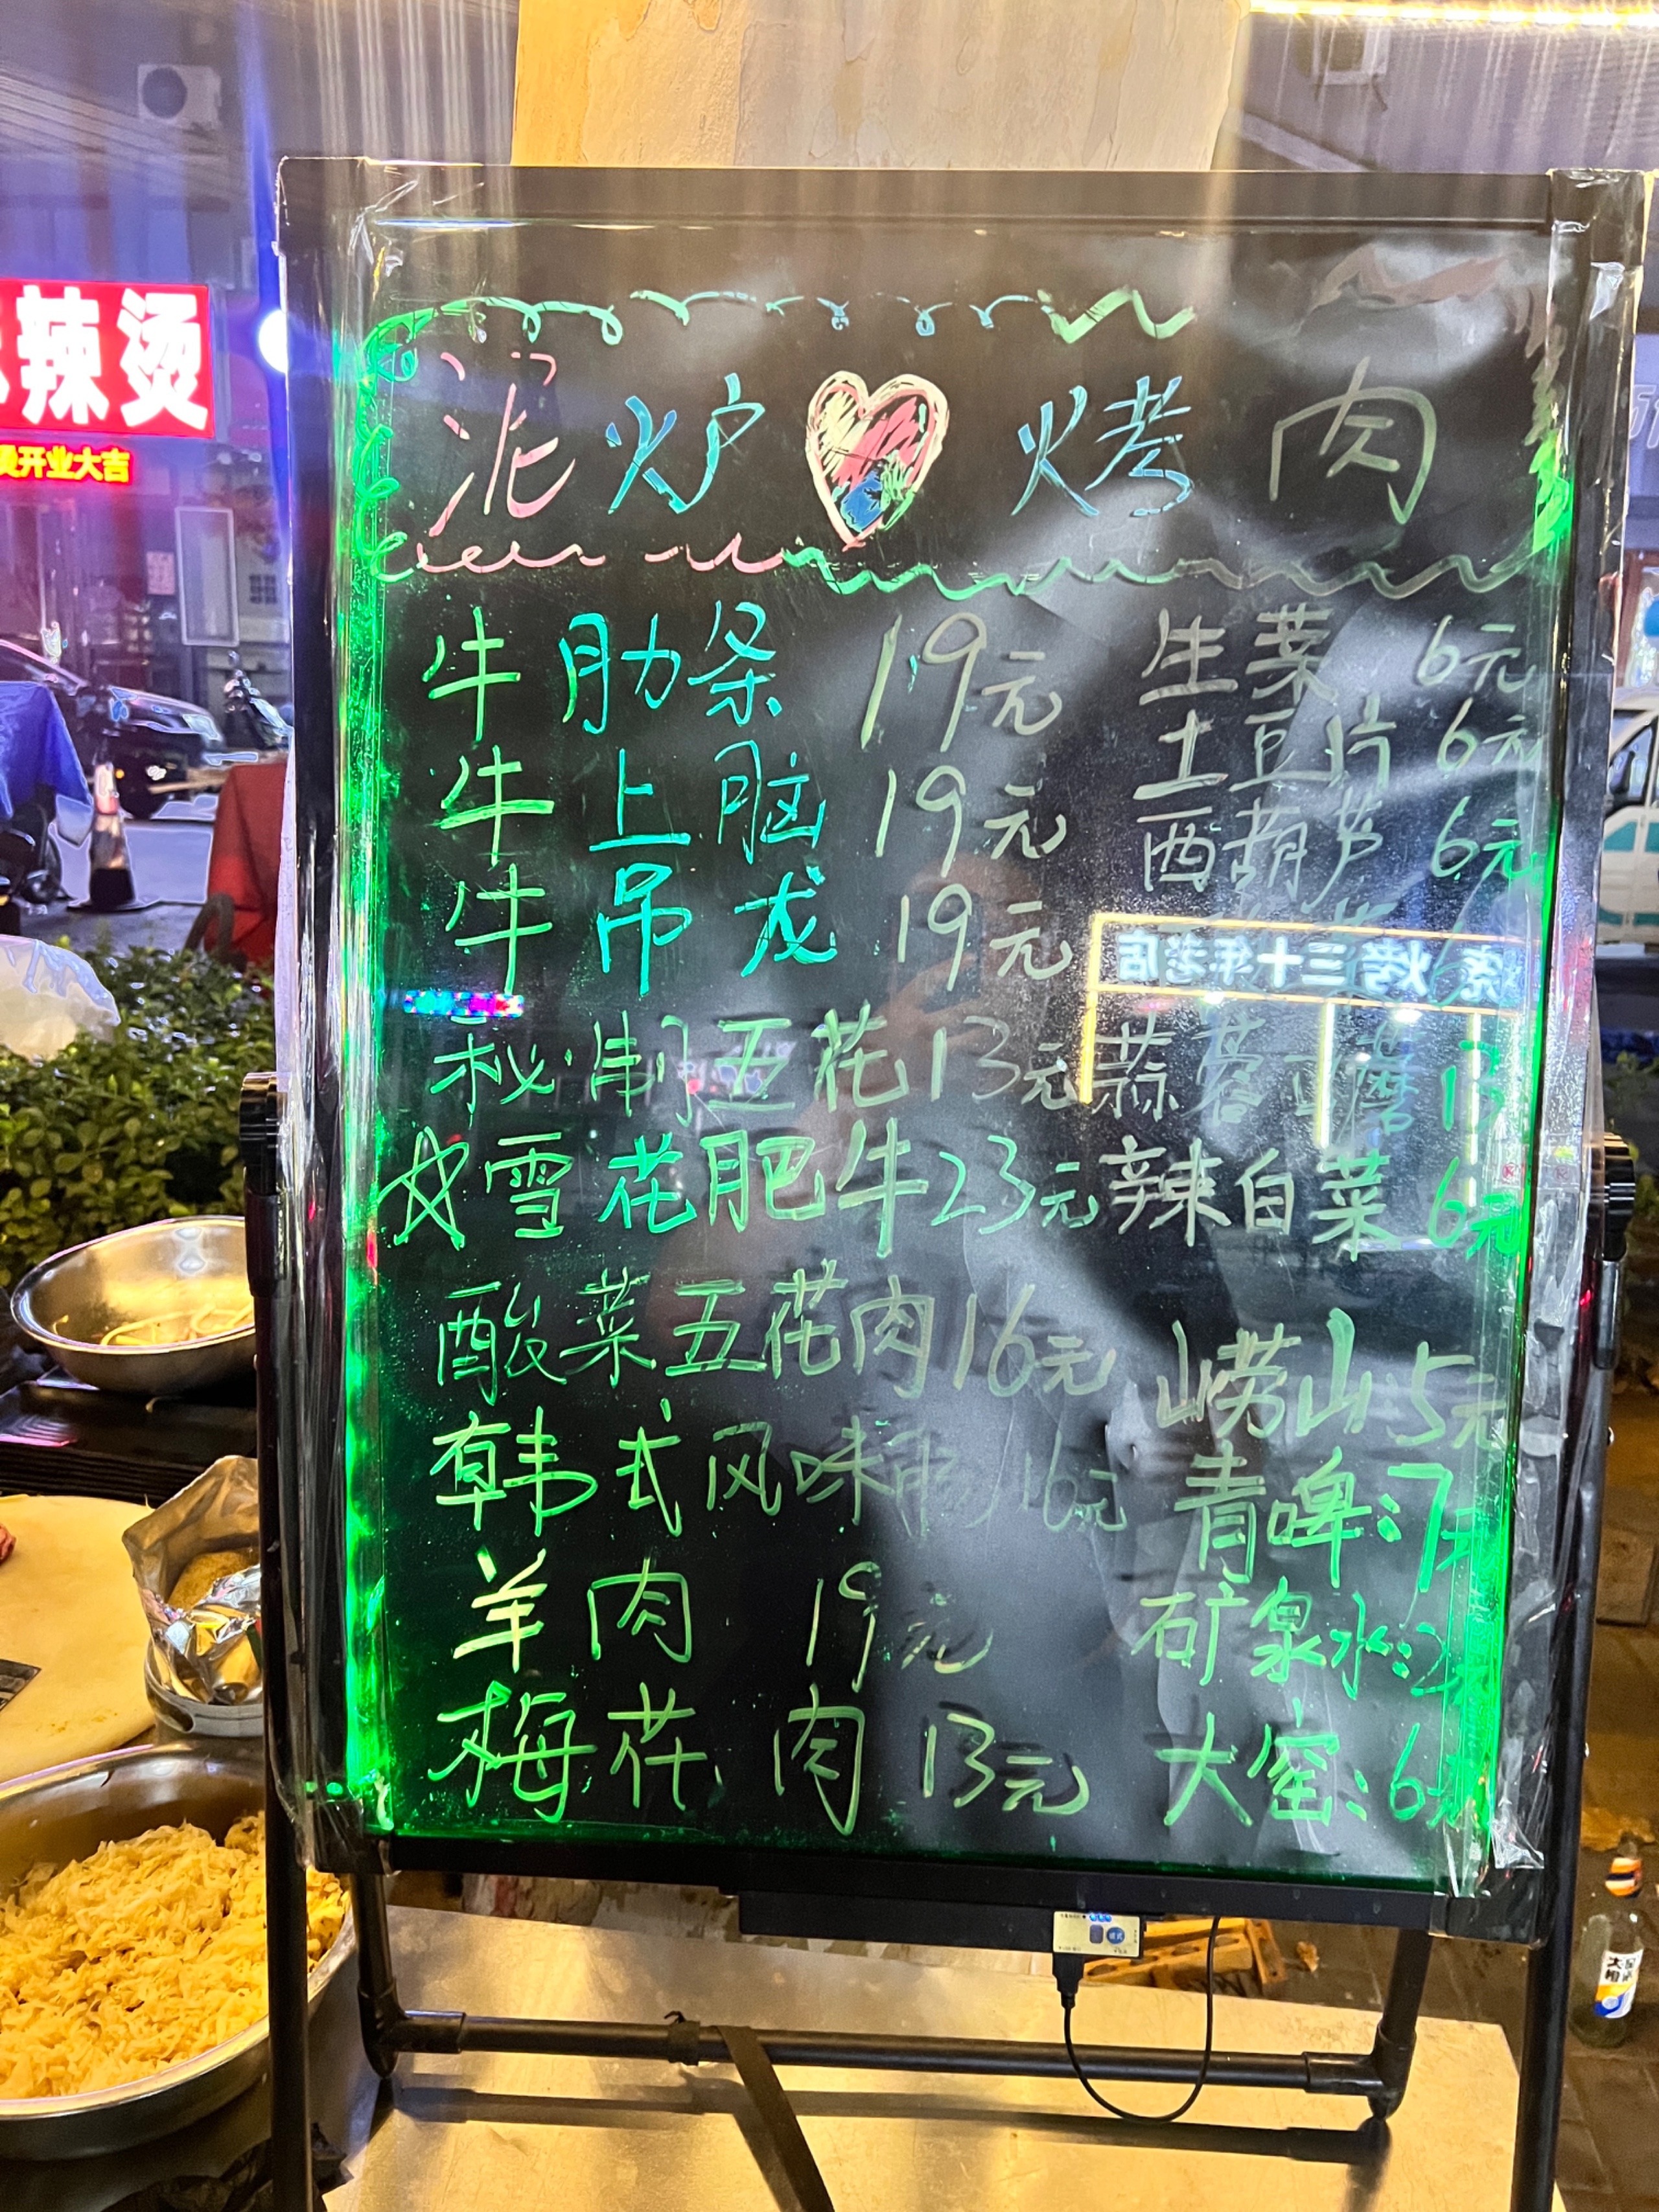 辣烫
烫开业大吉
泥炉 烤肉
牛肋条 19元 生菜 6元
牛上脑 19元 土豆片 6元
牛吊龙 19元 西葫芦 6元
烧烤三十年老店
秘制五花 13元 蒜蓉 蘑 13
雪花肥牛 23元 辣白菜 6元
酸菜五花肉 16元 崂山 5元
韩式风味 16元 青啤:7元
羊肉 19元 矿泉水:2元
梅花肉 13元 大窑:6元